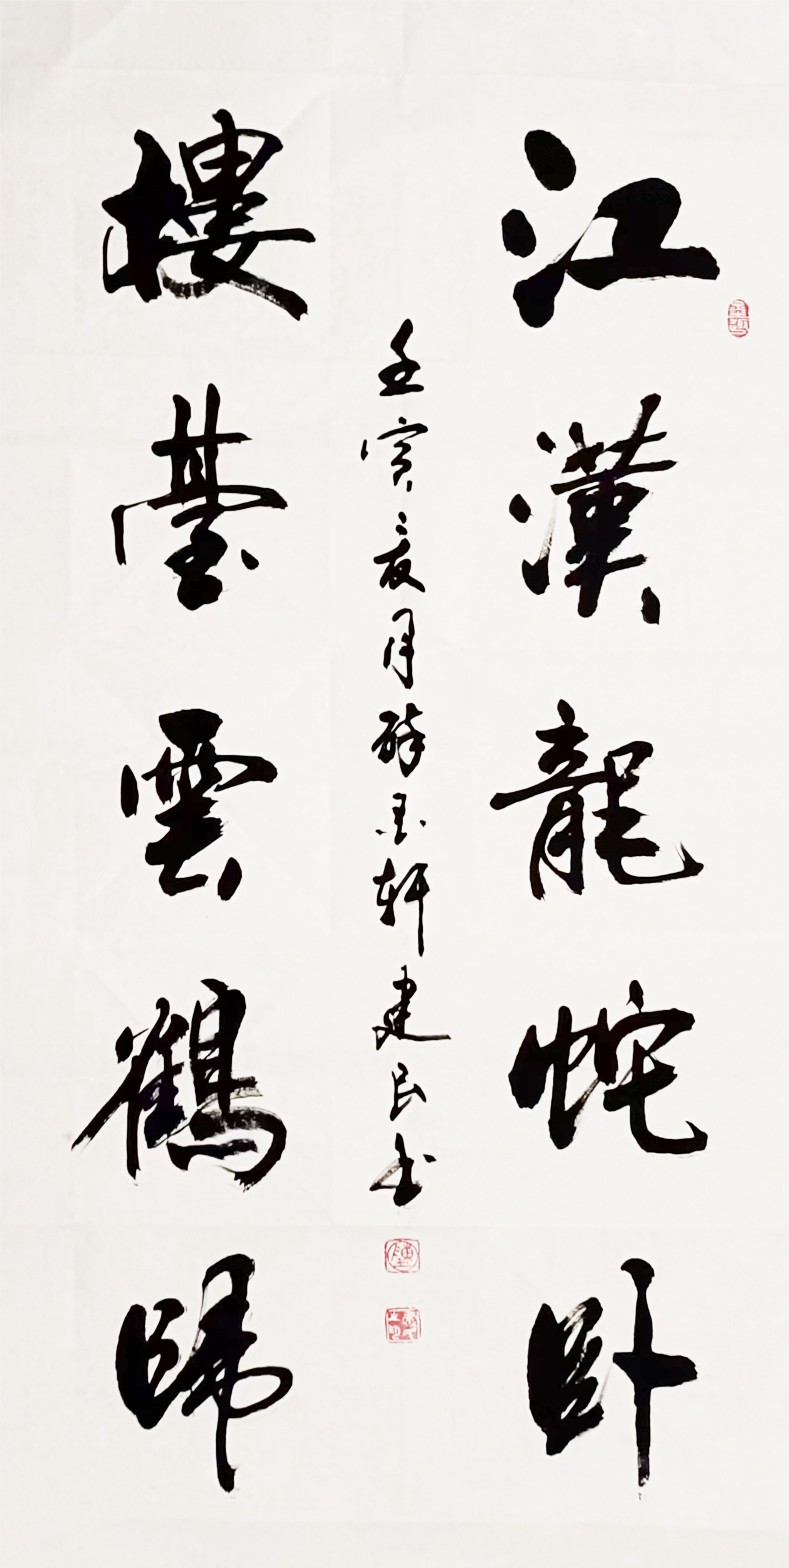 江漢龍蛇卧
壬寅夏月醉墨轩建民书
樓臺雲鶴歸